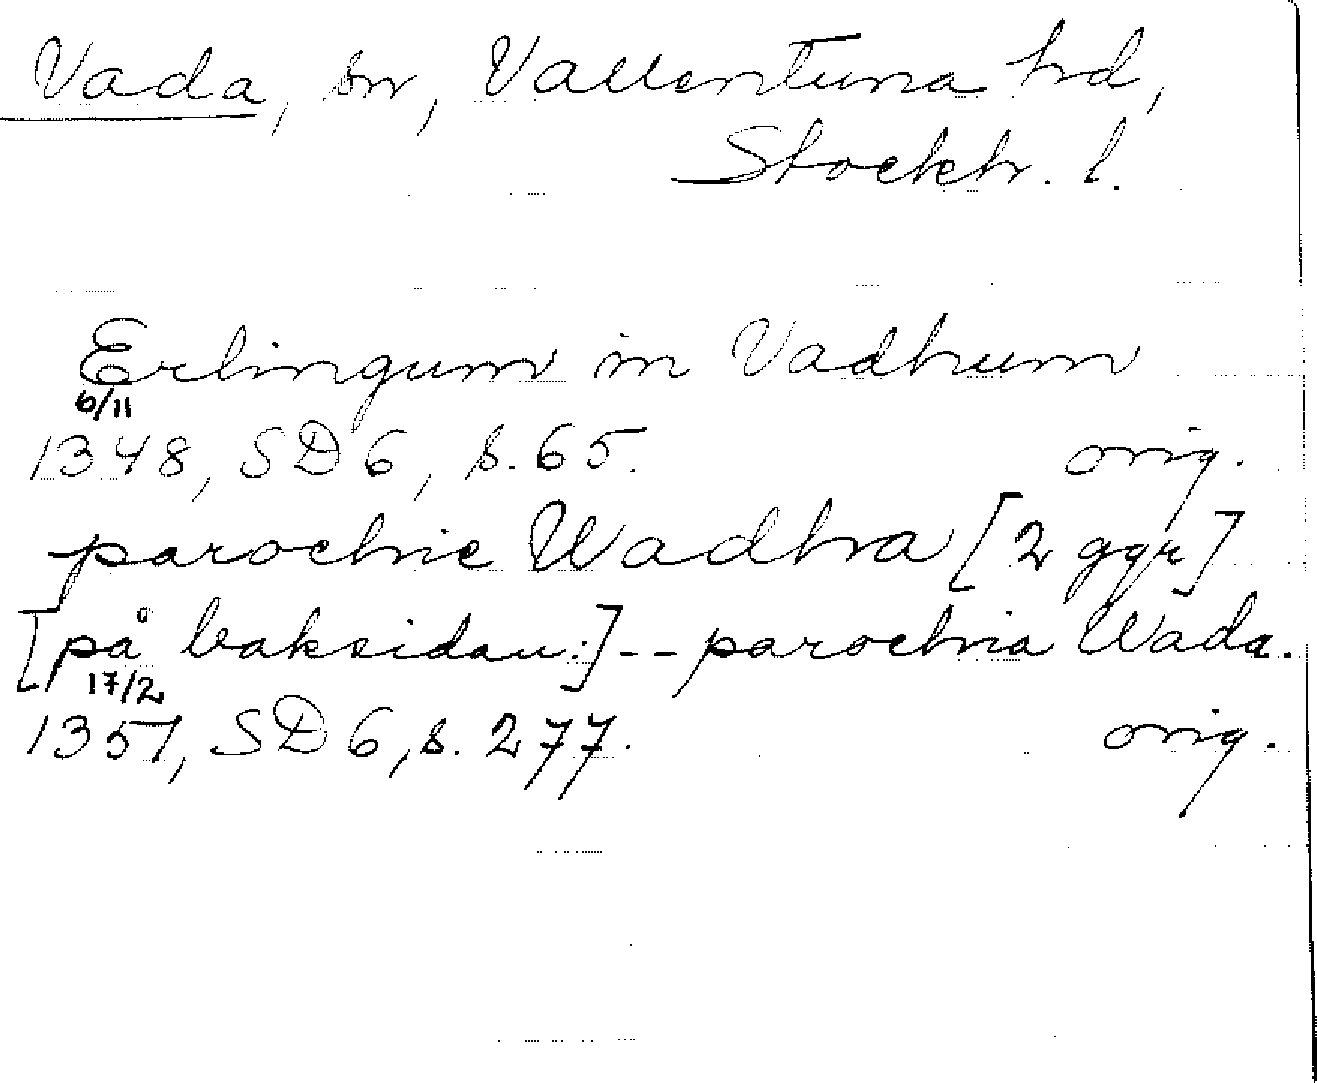 Vada, sn, Vallentuna hd,
Stockh. l.
Erlingum in Vadhum
6/11
1348, SD 6, s. 65. orig.
parochie Wadha [2 ggr]
[på baksidan:] -- parochia Wada.
17/2
1351, SD 6, s. 277. orig.